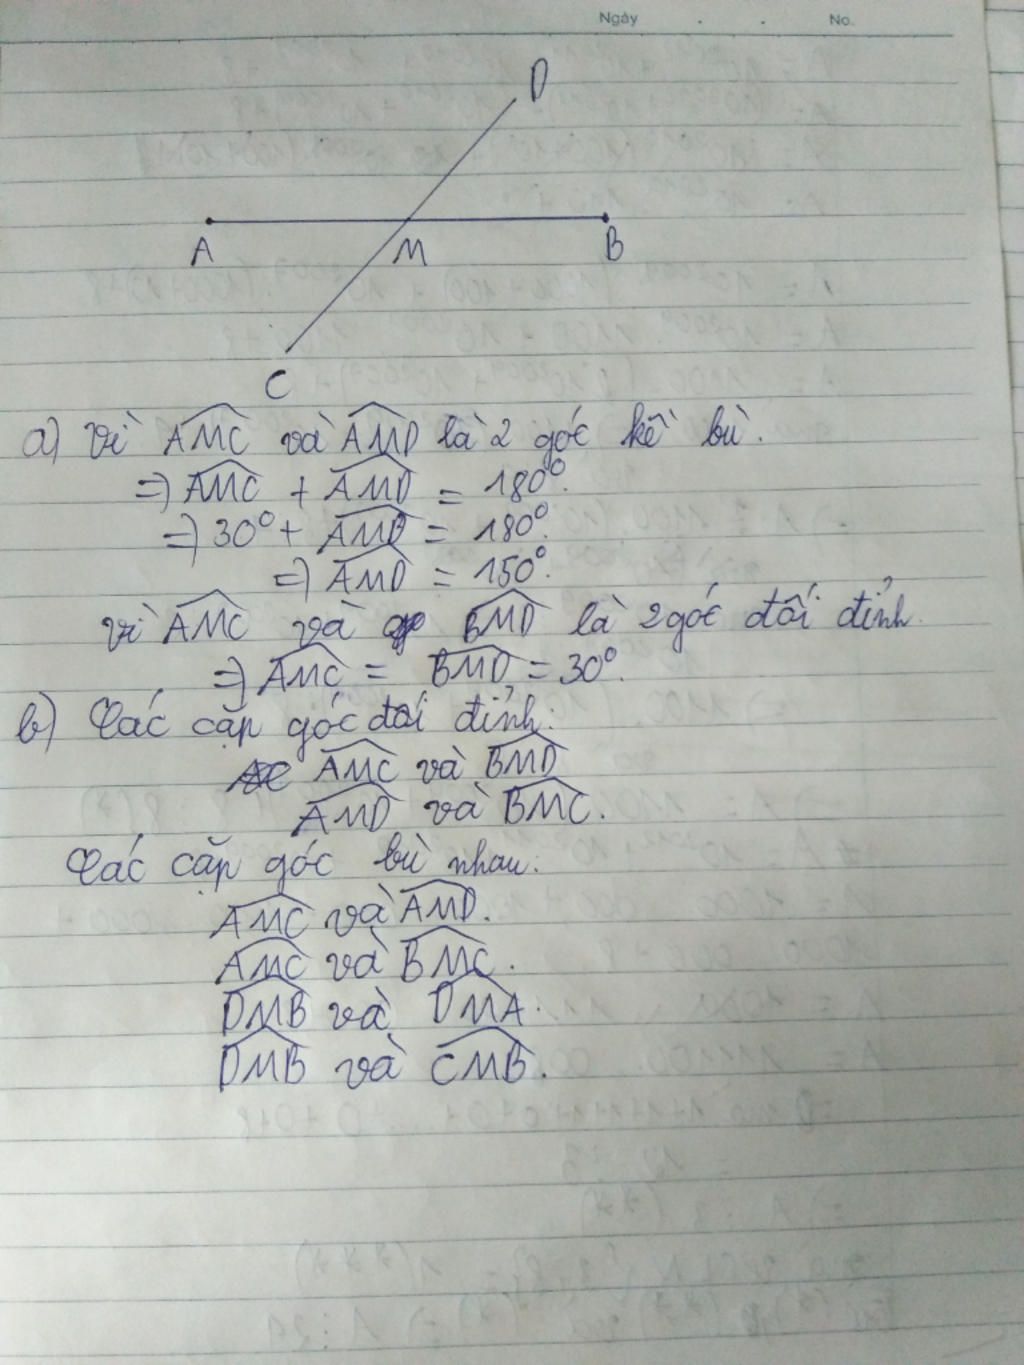 Ngày . . No.
D
A M B
C
a) Vì AMC và AMD là 2 góc kề bù.
=> AMC + AMD = 180°.
=> 30° + AMD = 180°.
=> AMD = 150°.
vì AMC và BMD là 2 góc đối đỉnh.
=> AMC = BMD = 30°.
b) Các cặp góc đối đỉnh:
AMC và BMD
AMD và BMC.
Các cặp góc bù nhau:
AMC và AMD.
AMC và BMC.
DMB và DMA.
DMB và CMB.